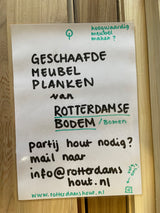 hoogwaardig
meubel
maken?
GESCHAAFDE
MEUBEL
PLANKEN
van
ROTTERDAMSE
BODEM / Bomen
partij hout nodig?
mail naar
info@rotterdams
hout.nl
www.rotterdamshout.nl